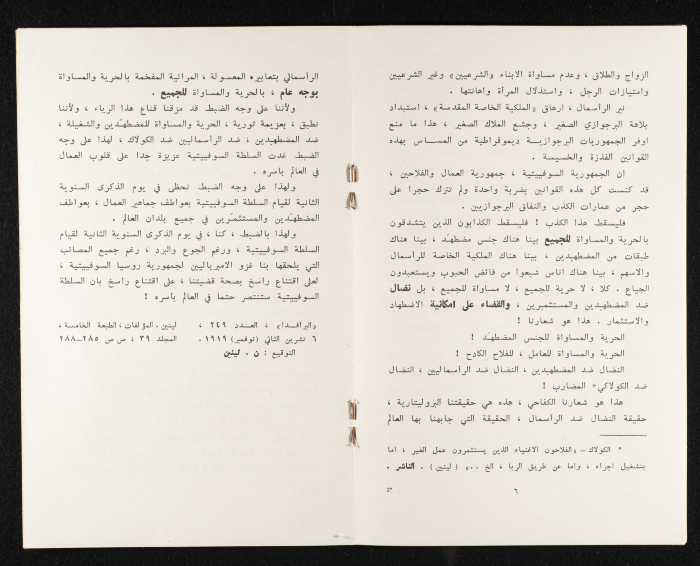 الزواج والطلاق ، وعدم مساواة الابناء «الشرعيين» وغير الشرعيين
وامتيازات الرجل ، واستذلال المرأة واهانتها .
نير الرأسمال ، ارهاق «الملكية الخاصة المقدسة» ، استبداد
بلاهة البرجوازي الصغير ، وجشع الملاك الصغير ، هذا ما منع
اوفر الجمهوريات البرجوازية ديموقراطية من المساس بهذه
القوانين القذرة والخسيسة .
ان الجمهورية السوفييتية ، جمهورية العمال والفلاحين ،
قد كنست كل هذه القوانين بضربة واحدة ولم تترك حجرا على
حجر من عمارات الكذب والنفاق البرجوازيين .
فليسقط هذا الكذب ! فليسقط الكذابون الذين يتشدقون
بالحرية والمساواة للجميع بينا هناك جنس مضطهد ، بينا هناك
طبقات من المضطهدين ، بينا هناك الملكية الخاصة للرأسمال
والاسهم ، بينا هناك اناس شبعوا من فائض الحبوب ويستعبدون
الجياع . كلا ، لا حرية للجميع ، لا مساواة للجميع ، بل نضال
ضد المضطهدين والمستثمرين ، والقضاء على امكانية الاضطهاد
والاستثمار . هذا هو شعارنا !
الحرية والمساواة للجنس المضطهَد !
الحرية والمساواة للعامل ، للفلاح الكادح !
النضال ضد المضطهدين ، النضال ضد الرأسماليين ، النضال
ضد الكولاكي* المضارب !
هذا هو شعارنا الكفاحي ، هذه هي حقيقتنا البروليتارية ،
حقيقة النضال ضد الرأسمال ، الحقيقة التي جابهنا بها العالم
* الكولاك – «الفلاحون الاغنياء الذين يستثمرون عمل الغير ، اما
بتشغيل اجراء ، واما عن طريق الربا ، الخ ..» (لينين) . الناشر .
٦
الرأسمالي بتعابيره المعسولة ، المرائية المفخمة بالحرية والمساواة
بوجه عام ، بالحرية والمساواة للجميع .
ولأننا على وجه الضبط قد مزقنا قناع هذا الرياء ، ولأننا
نطبق ، بعزيمة ثورية ، الحرية والمساواة للمضطهَدين والشغيلة ،
ضد المضطهدين ، ضد الرأسماليين ضد الكولاك ، لهذا على وجه
الضبط غدت السلطة السوفييتية عزيزة جدا على قلوب العمال
في العالم باسره .
ولهذا على وجه الضبط نحظى في يوم الذكرى السنوية
الثانية لقيام السلطة السوفييتية بعواطف جماهير العمال ، بعواطف
المضطهَدين والمستثمَرين في جميع بلدان العالم .
ولهذا بالضبط ، كنا ، في يوم الذكرى السنوية الثانية لقيام
السلطة السوفييتية ، ورغم الجوع والبرد ، رغم جميع المصائب
التي يلحقها بنا غزو الامبرياليين لجمهورية روسيا السوفييتية ،
لعلى اقتناع راسخ بصحة قضيتنا ، على اقتناع راسخ بان السلطة
السوفييتية ستنتصر حتما في العالم باسره !
«البرافدا» ، العدد ٢٤٩ ،
٦ تشرين الثاني (نوفمبر) ١٩١٩ .
التوقيع : ن . لينين
لينين . المؤلفات ، الطبعة الخامسة ،
المجلد ٣٩ ، ص ص ٢٨٥–٢٨٨